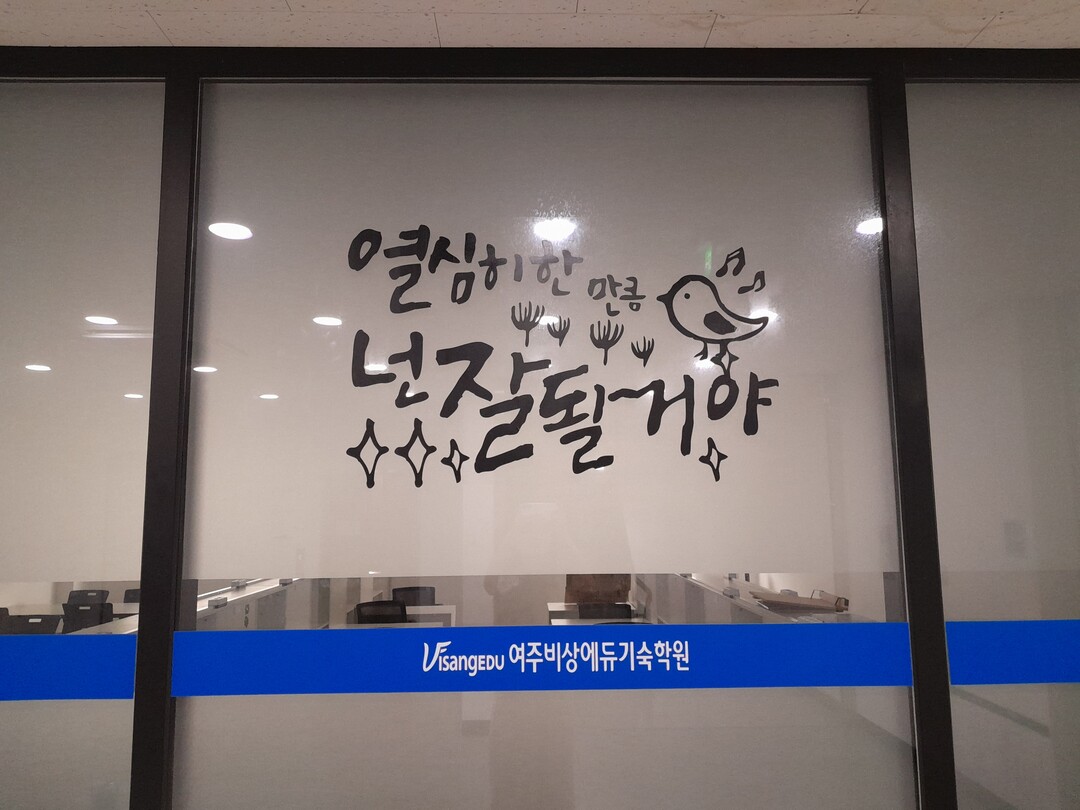 열심히한 만큼
넌 잘될거야
VisangEDU 여주비상에듀기숙학원